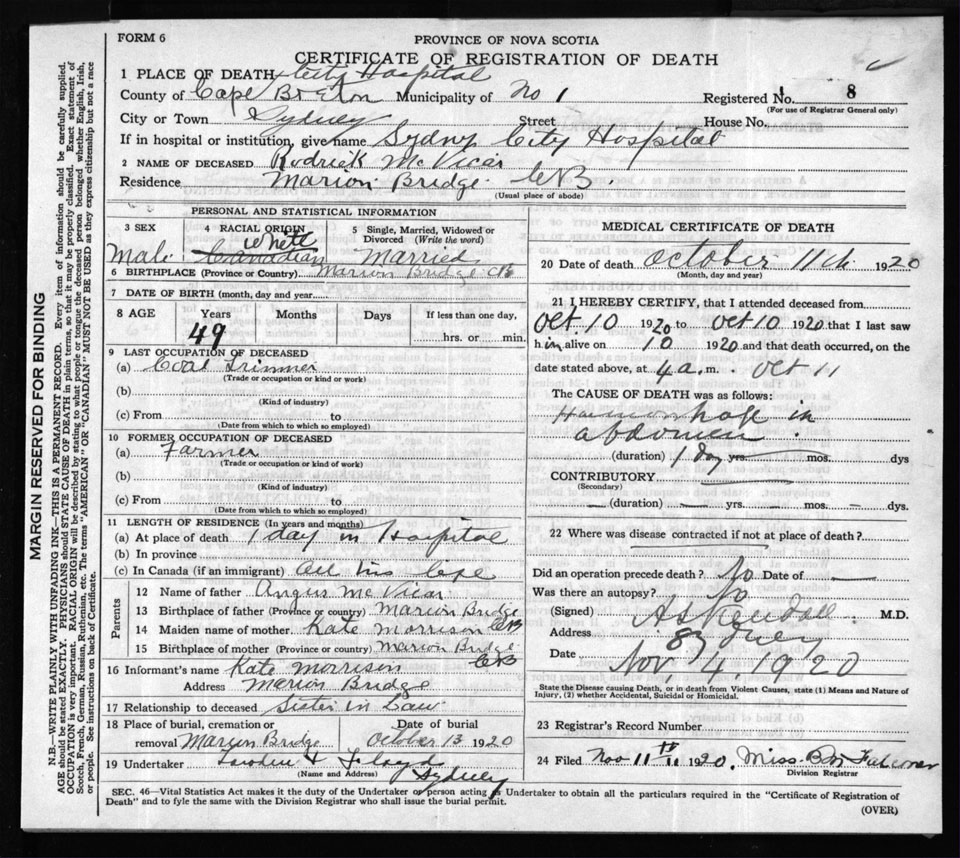 FORM 6
PROVINCE OF NOVA SCOTIA
CERTIFICATE OF REGISTRATION OF DEATH
1 PLACE OF DEATH City Hospital
County of Cape Breton Municipality of No 1 Registered No. 8
(For use of Registrar General only)
City or Town Sydney Street House No.
If in hospital or institution, give name Sydney City Hospital
2 NAME OF DECEASED Rodrick McVicar
Residence Marion Bridge CB.
(Usual place of abode)
PERSONAL AND STATISTICAL INFORMATION
3 SEX 4 RACIAL ORIGIN 5 Single, Married, Widowed or Divorced (Write the word)
White
Male Canadian Married
6 BIRTHPLACE (Province or Country) Marion Bridge CB
7 DATE OF BIRTH (month, day and year)
8 AGE Years Months Days If less than one day,
49 hrs. or min.
9 LAST OCCUPATION OF DECEASED
(a) Coal Trimmer
(Trade or occupation or kind or work)
(b)
(Kind of industry)
(c) From to
(Date from which to which so employed)
10 FORMER OCCUPATION OF DECEASED
(a) Farmer
(Trade or occupation or kind of work)
(b)
(Kind of industry)
(c) From to
(Date from which to which so employed)
11 LENGTH OF RESIDENCE (In years and months)
(a) At place of death 1 day in Hospital
(b) In province
(c) In Canada (if an immigrant) all his life
Parents
12 Name of father Angus McVicar
13 Birthplace of father (Province or country) Marion Bridge
14 Maiden name of mother Kate Morrison CB
15 Birthplace of mother (Province or country) Marion Bridge
CB
16 Informant's name Kate Morrison
Address Marion Bridge
17 Relationship to deceased Sister in Law
18 Place of burial, cremation or removal Marion Bridge Date of burial October 13 1920
19 Undertaker & Lloyd
(Name and Address) Sydney
MEDICAL CERTIFICATE OF DEATH
20 Date of death October 11th 1920
(Month, day and year)
21 I HEREBY CERTIFY, that I attended deceased from
Oct. 10 1920 to Oct 10 1920 that I last saw
him alive on 10 1920 and that death occurred, on the
date stated above, at 4 a. m. Oct 11
The CAUSE OF DEATH was as follows:
Haemorrhage in
abdomen.
(duration) 1 day yrs. mos. dys
CONTRIBUTORY
(Secondary)
(duration) yrs. mos. dys.
22 Where was disease contracted if not at place of death?
Did an operation precede death? No Date of
Was there an autopsy? No
(Signed) AS Kendall M.D.
Address Sydney
Date Nov, 4, 1920
State the Disease causing Death, or in death from Violent Causes, state (1) Means and Nature of Injury, (2) whether Accidental, Suicidal or Homicidal.
23 Registrar's Record Number
24 Filed Nov 11th 1920. Miss
Division Registrar
SEC. 46—Vital Statistics Act makes it the duty of the Undertaker or person acting as Undertaker to obtain all the particulars required in the "Certificate of Registration of
Death" and to fyle the same with the Division Registrar who shall issue the burial permit.
(OVER)
MARGIN RESERVED FOR BINDING
N.B.—WRITE PLAINLY WITH UNFADING INK—THIS IS A PERMANENT RECORD. Every item of information should be carefully supplied.
AGE should be stated EXACTLY. PHYSICIANS should STATE CAUSE OF DEATH in plain terms, so that it may be properly classified. Exact statement of
OCCUPATION is very important. RACIAL ORIGIN will be described by stating to what people or tongue the deceased person belonged whether English, Irish,
Scotch, French, German, Russian, Ruthenian, etc. The terms "AMERICAN" OR "CANADIAN" MUST NOT BE USED as they express citizenship but not a race
or people. See instructions on back of Certificate.